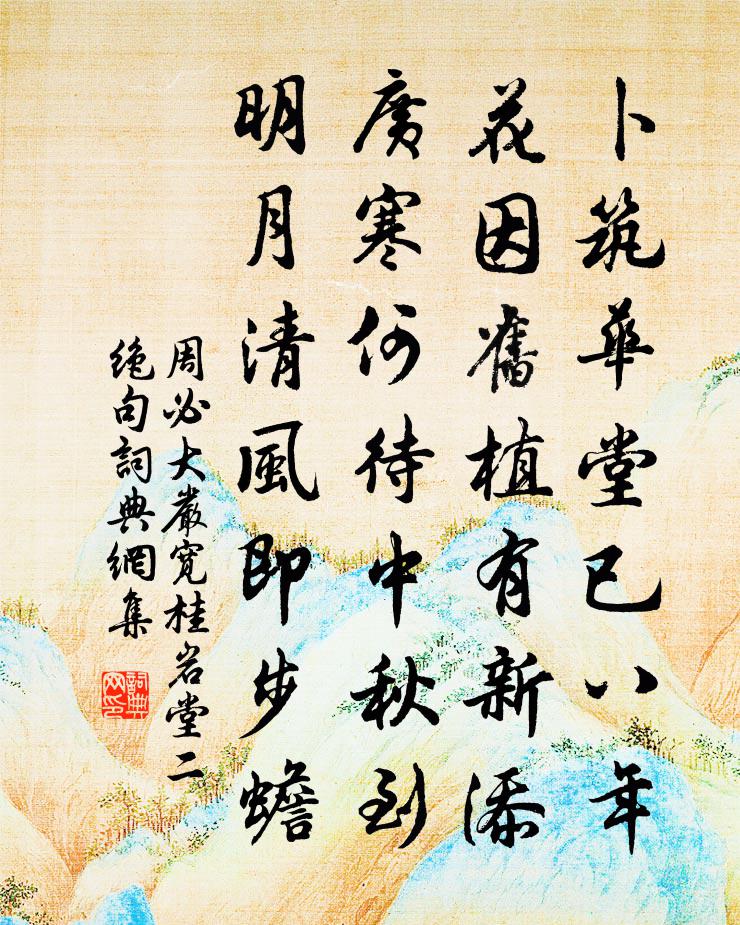 卜筑華堂已八年
花因舊植有新添
廣寒何待中秋到
明月清風即步蟾
周必大嚴寬桂岩堂二
絶句詞典網集
詞典
网印